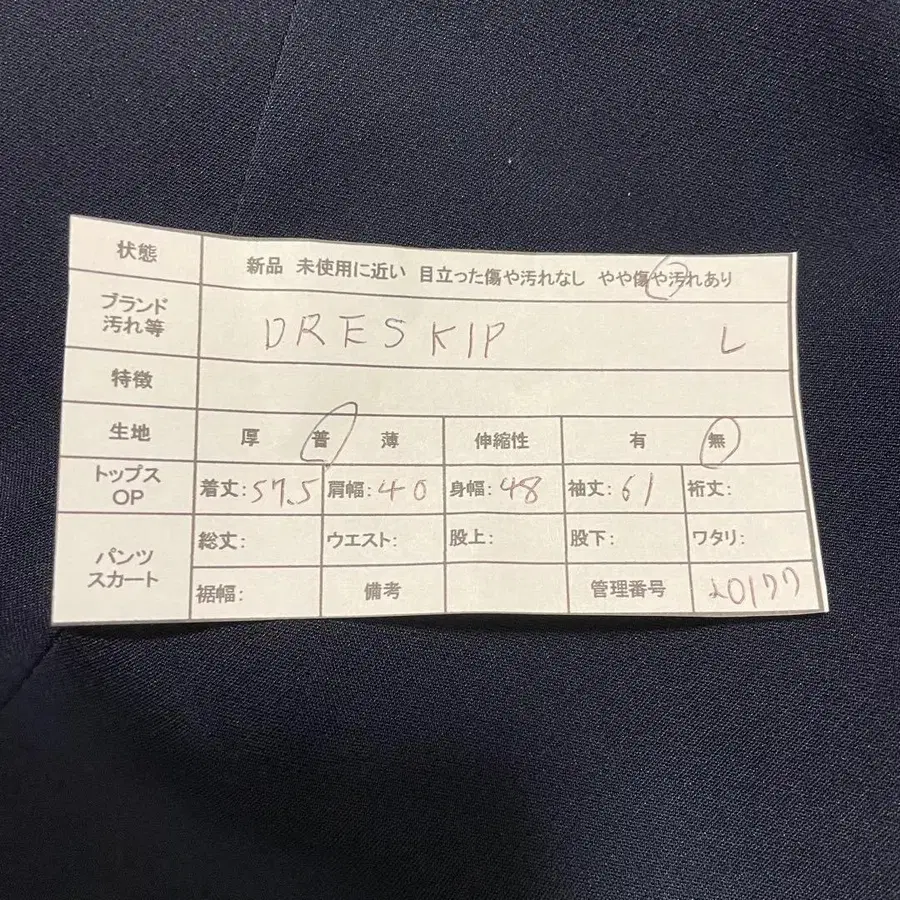 状態 新品 未使用に近い 目立った傷や汚れなし やや傷や汚れあり
ブランド
汚れ等 DRESKIP L
特徴
生地 厚 普 薄 伸縮性 有 無
トップス
OP 着丈:57.5 肩幅:40 身幅:48 袖丈:61 裄丈:
パンツ
スカート 総丈: ウエスト: 股上: 股下: ワタリ:
裾幅: 備考 管理番号 20177